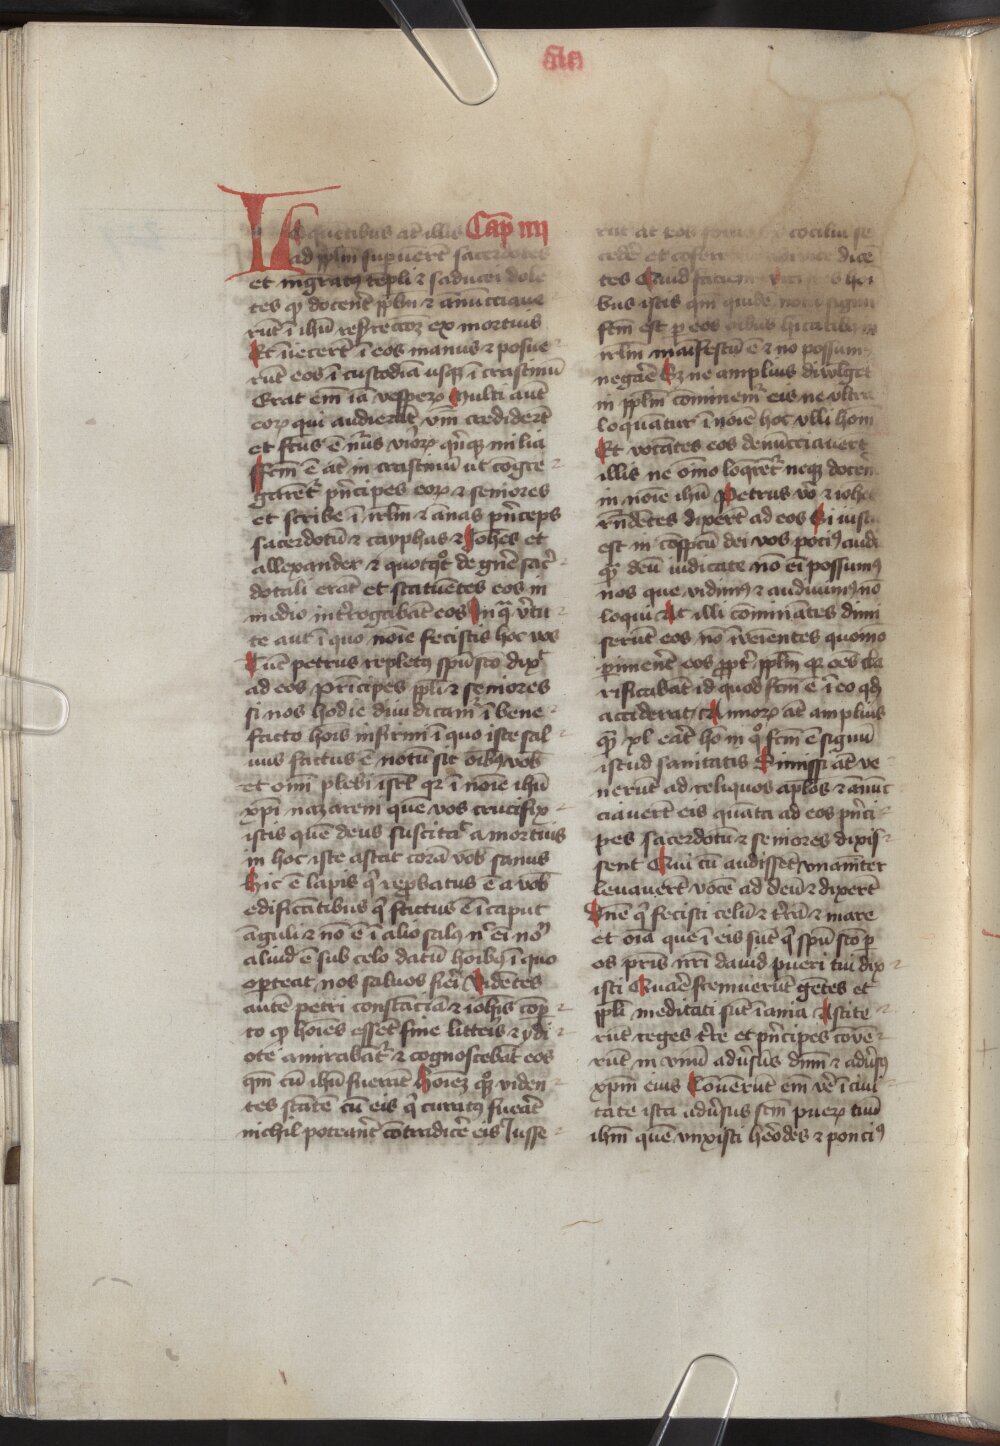 Ac
Loquentibus at illis Cap IIII
ad pplm supuert sacerdotes
et mgratꝰ tepli ⁊ saducei dole
tes qꝫ docent pplm ⁊ anucciaue
rut i ihu resrrectoꝫ ex mortuis
Et iiecert i eos manus ⁊ posue
rut eos i custodia usqꝫ i crastinu
Erat em ia vespera Multi aut
eorꝫ qui audierat vm credidert
et fcus e nus viroꝝ qnqꝫ milia
Fcm e at in crastinu ut cogre
garentr pncipes eorꝝ ⁊ seniores
et scribe i irlm ⁊ annas pnceps
sacerdotu ⁊ cayphas ⁊ Johes et
allexander ⁊ quotqt de gne sacr
dotali erat et statuetes eos in
medio introgabat eos In qua vtu
te aut i quo noie fecistis hoc vos
Tuc petrus repletꝰ spu sco dix
ad eos principes ppli ⁊ seniores
si nos hodie diiudicamr i bene
facto hois infirmi i quo iste sal
uus factus e notu sit oibꝫ vob
et omi plebi isrl qr i noie ihu
xpi nazareni que vos crucifix
istis que deus suscitat a mortuis
in hoc iste astat cora vob sanus
Hic e lapis q repbatus e a vob
edificatibus q factus e i caput
aguli ⁊ no e i alio salꝰ n ei no
aliud e sub celo datu hoibꝫ i quo
oporteat nos saluos fieri Videtes
aute petri constacia ⁊ iohis cop
to qꝫ hoies esset sine litteis ⁊ ydi
ote amirabatr ⁊ cognoscebat eos
qm cu ihu fuerat Hoieꝫ qꝫ viden
tes state cu eis q curatꝰ fueat
nichil poterant cotradice eis Jusse
rut at eos foras ex cociliu se
cede et cofere dice
tes Quid faciem hoi
bus istis qm quide notu signu
fcm est p eos oibus hitatibꝫ in
irlm maifestu e ⁊ no possumꝰ
negae Sꝫ ne amplius diwlget
in pplm cominemr eis ne ultra
loquatur i noie hoc vlli hom
Et vocates eos denucciauert
illis ne omo loqretr neqꝫ docent
in noie ihu Petrus vo ⁊ iohes
rndetes dixert ad eos Si iustu
est in cospcu dei vos pociꝰ audi
qꝫ deu iudicate no ei possumꝰ
nos que vidimꝰ ⁊ audiuimꝰ no
loqui At illi cominates dimi
serut eos no iueientes quomo
punient eos ppt pplm qr oes cla
rificabat id quod fcm e i eo qd
acciderat Annorꝝ at amplius
qꝫ xl eat homo i q fcm e signu
istud sanitatis Dimissi at ve
nerut ad reliquos aplos ⁊ anuc
ciauert eis quata ad eos pnci
pes sacerdotu ⁊ seniores dixis
sent Qui cu audisset vnamiter
leuauert voce ad deu ⁊ dixert
Dne q fecisti celu ⁊ tra ⁊ mare
et oia que i eis sut q spu sco p
os pris nri dauid pueri tui dix
isti Quae fremuerut getes et
ppli meditati sut iania Astite
rut reges tre et pncipes coue
rut in vnu adusus dnm ⁊ adusꝰ
xpm eius Couerut em ve i ciui
tate ista adusus scm pueꝝ tuu
ihm que vnxisti herodes ⁊ ponciꝰ